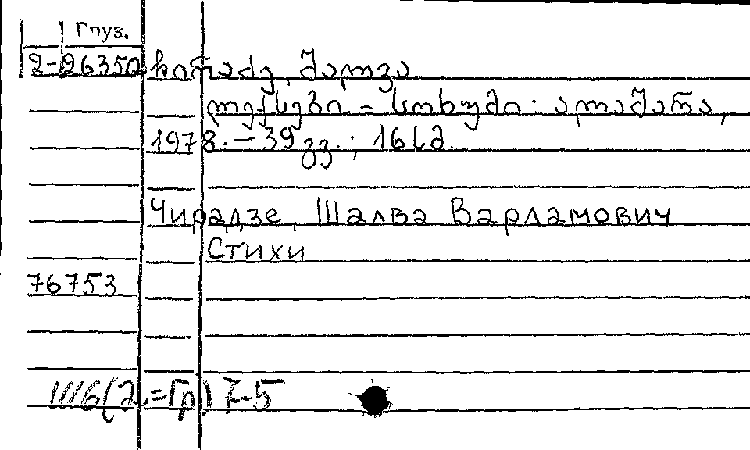 Гпуз.
2-26350 ჩირაძე, შალვა
ლექსები - სოხუმი: ალაშარა,
1978. - 39გვ.; 16სმ
Чирадзе, Шалва Варламович
Стихи
76753
Ш6(2=Гр)7-5